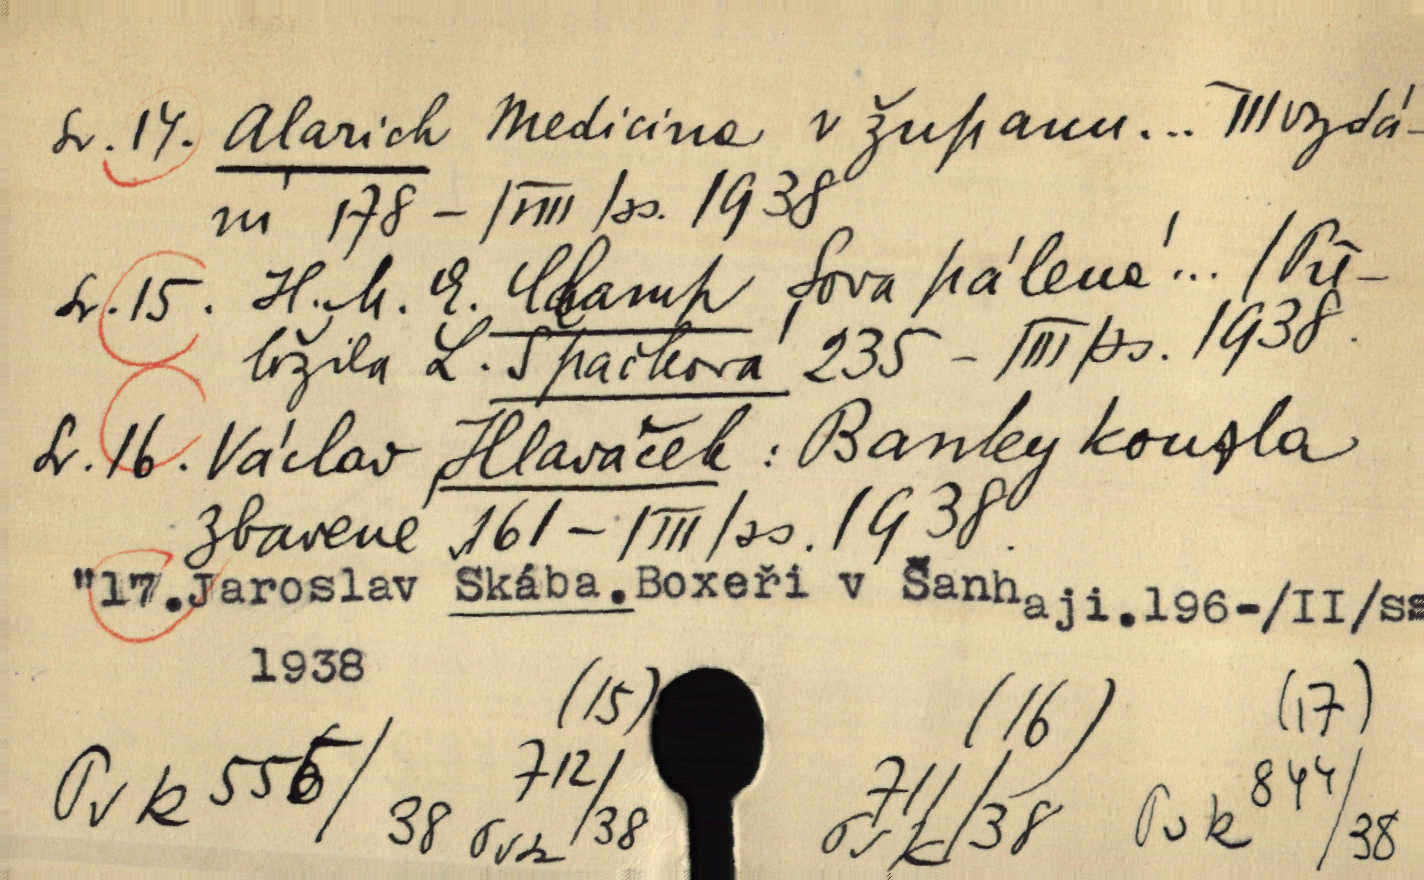 Sv. 14. Alarich Medicina v županu... III vydá-
ní 178 - /VIII/ ss. 1938
Sv. 15. H. M. E. Clamp Sova pálená!... /Pře-
ložila L. Špačková 235 - /III/ ss. 1938.
Sv. 16. Václav Hlaváček: Banky kouzla
zbavené 161 - /III/ ss. 1938.
"17. Jaroslav Skába. Boxeři v Šanhaji. 196-/II/ss
1938
(15) (16) (17)
Pvk 556/38 712/38 711/38 Pvk 844/38
Pvk Pvk